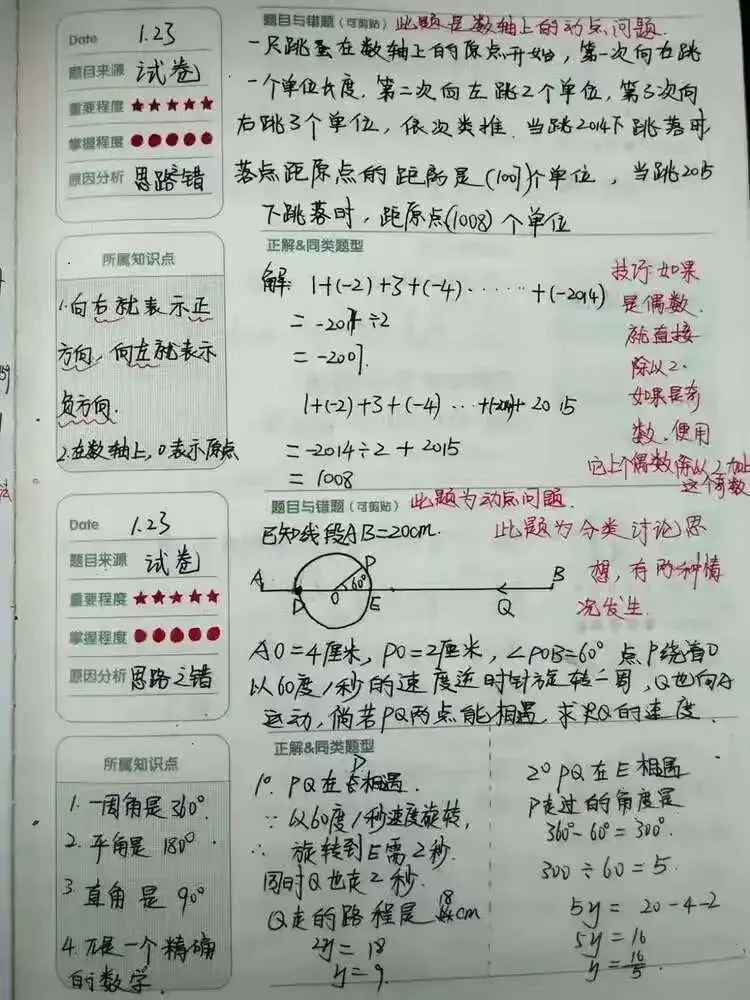 Date 1.23
题目来源 试卷
重要程度 ★★★★★
掌握程度 ●●●●●
原因分析 思路错
题目与错题(可剪贴) 此题是数轴上的动点问题.
一只跳蚤在数轴上的原点开始,第一次向右跳
一个单位长度.第二次向左跳2个单位,第3次向
右跳3个单位,依次类推.当跳2014下跳落时
落点距原点的距离是(1007)个单位,当跳2015
下跳落时,距原点(1008)个单位
所属知识点
1.向右就表示正
方向,向左就表示
负方向.
2.在数轴上,0表示原点
正解&同类题型
解: 1+(-2)+3+(-4)······+(-2014)
= -2014÷2
= -2007.
1+(-2)+3+(-4)···+(-2014)+2015
= -2014÷2+2015
= 1008
技巧:如果
是偶数.
就直接
除以2.
如果是奇
数,便用
它上个偶数除以2加上
这个奇数
Date 1.23
题目来源 试卷
重要程度 ★★★★★
掌握程度 ●●●●●
原因分析 思路之错
题目与错题(可剪贴) 此题为动点问题.
已知线段AB=20cm.
此题为分类讨论思
想,有两种情
况发生.
A D O 60° P E Q B
AO=4厘米,PO=2厘米,∠POB=60°点P绕着O
以60度/秒的速度逆时针旋转一周,Q也向A
运动,倘若PQ两点能相遇,求出Q的速度.
所属知识点
1. 一周角是360°.
2. 平角是180°
3. 直角是90°
4. π是一个精确
的数学.
正解&同类题型
1° PQ在D相遇.
∵ 以60度/秒速度旋转,
∴ 旋转到E需2秒.
同时Q也走2秒.
Q走的路程是18cm
2y=18
y=9.
2° PQ在E相遇
P走过的角度是
360°-60°=300°.
300÷60=5.
5y= 20-4-2
5y=16
y=16/5.